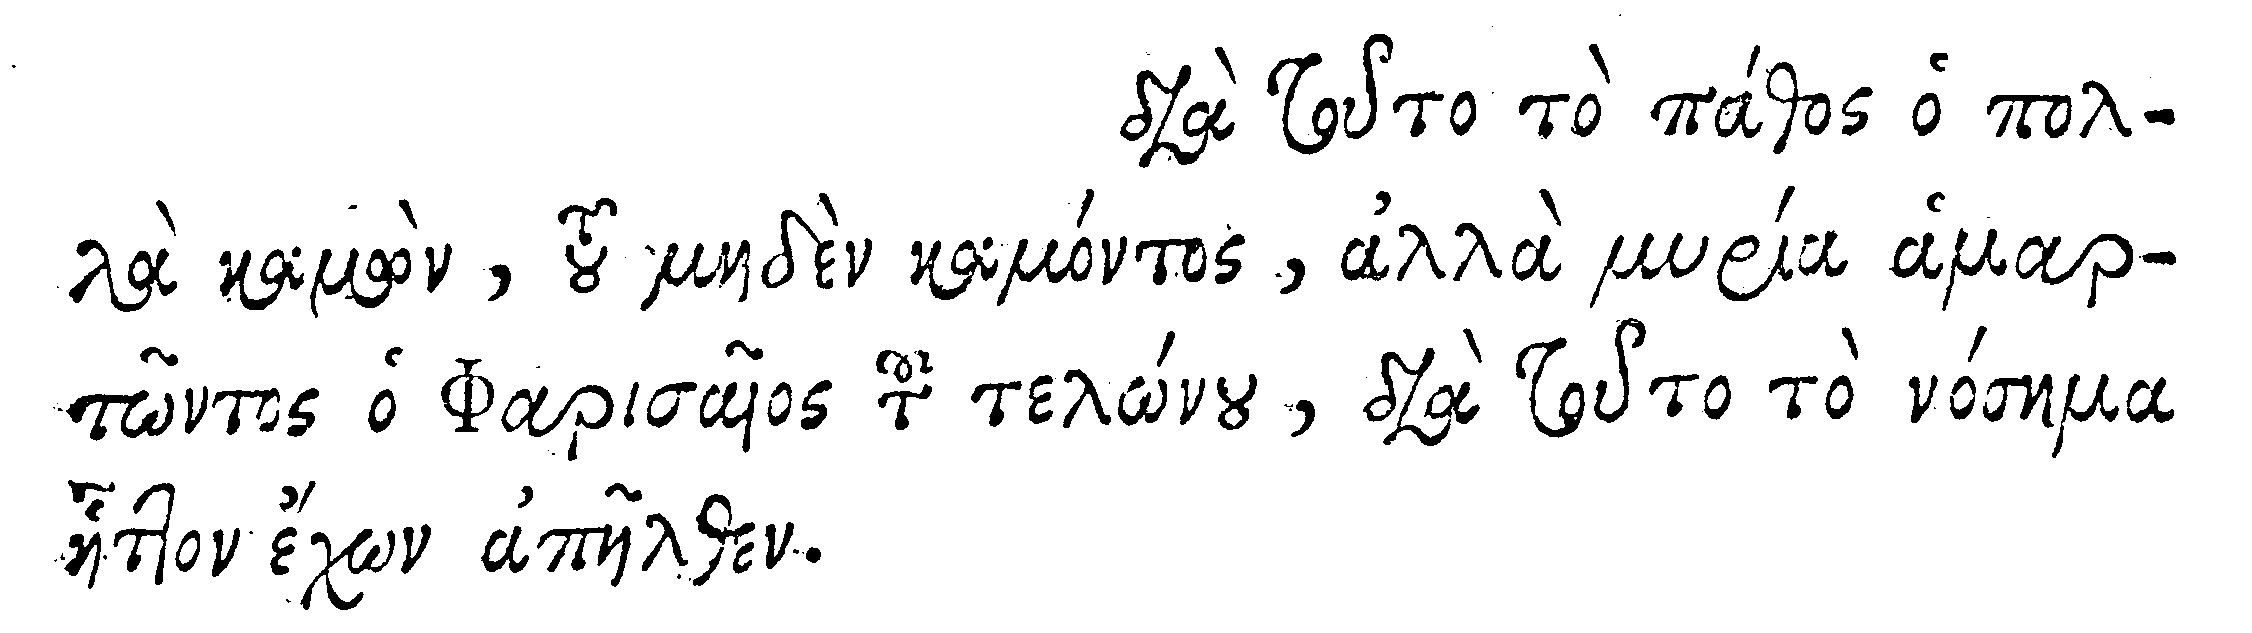 διὰ τοῦτο τὸ πάθος ὁ πολ-
λὰ καμὼν, τοῦ μηδὲν καμόντος, ἀλλὰ μυρία ἁμαρ-
τῶντος ὁ Φαρισαῖος τοῦ τελώνου, διὰ τοῦτο τὸ νόσημα
ἧττον ἔχων ἀπῆλθεν.